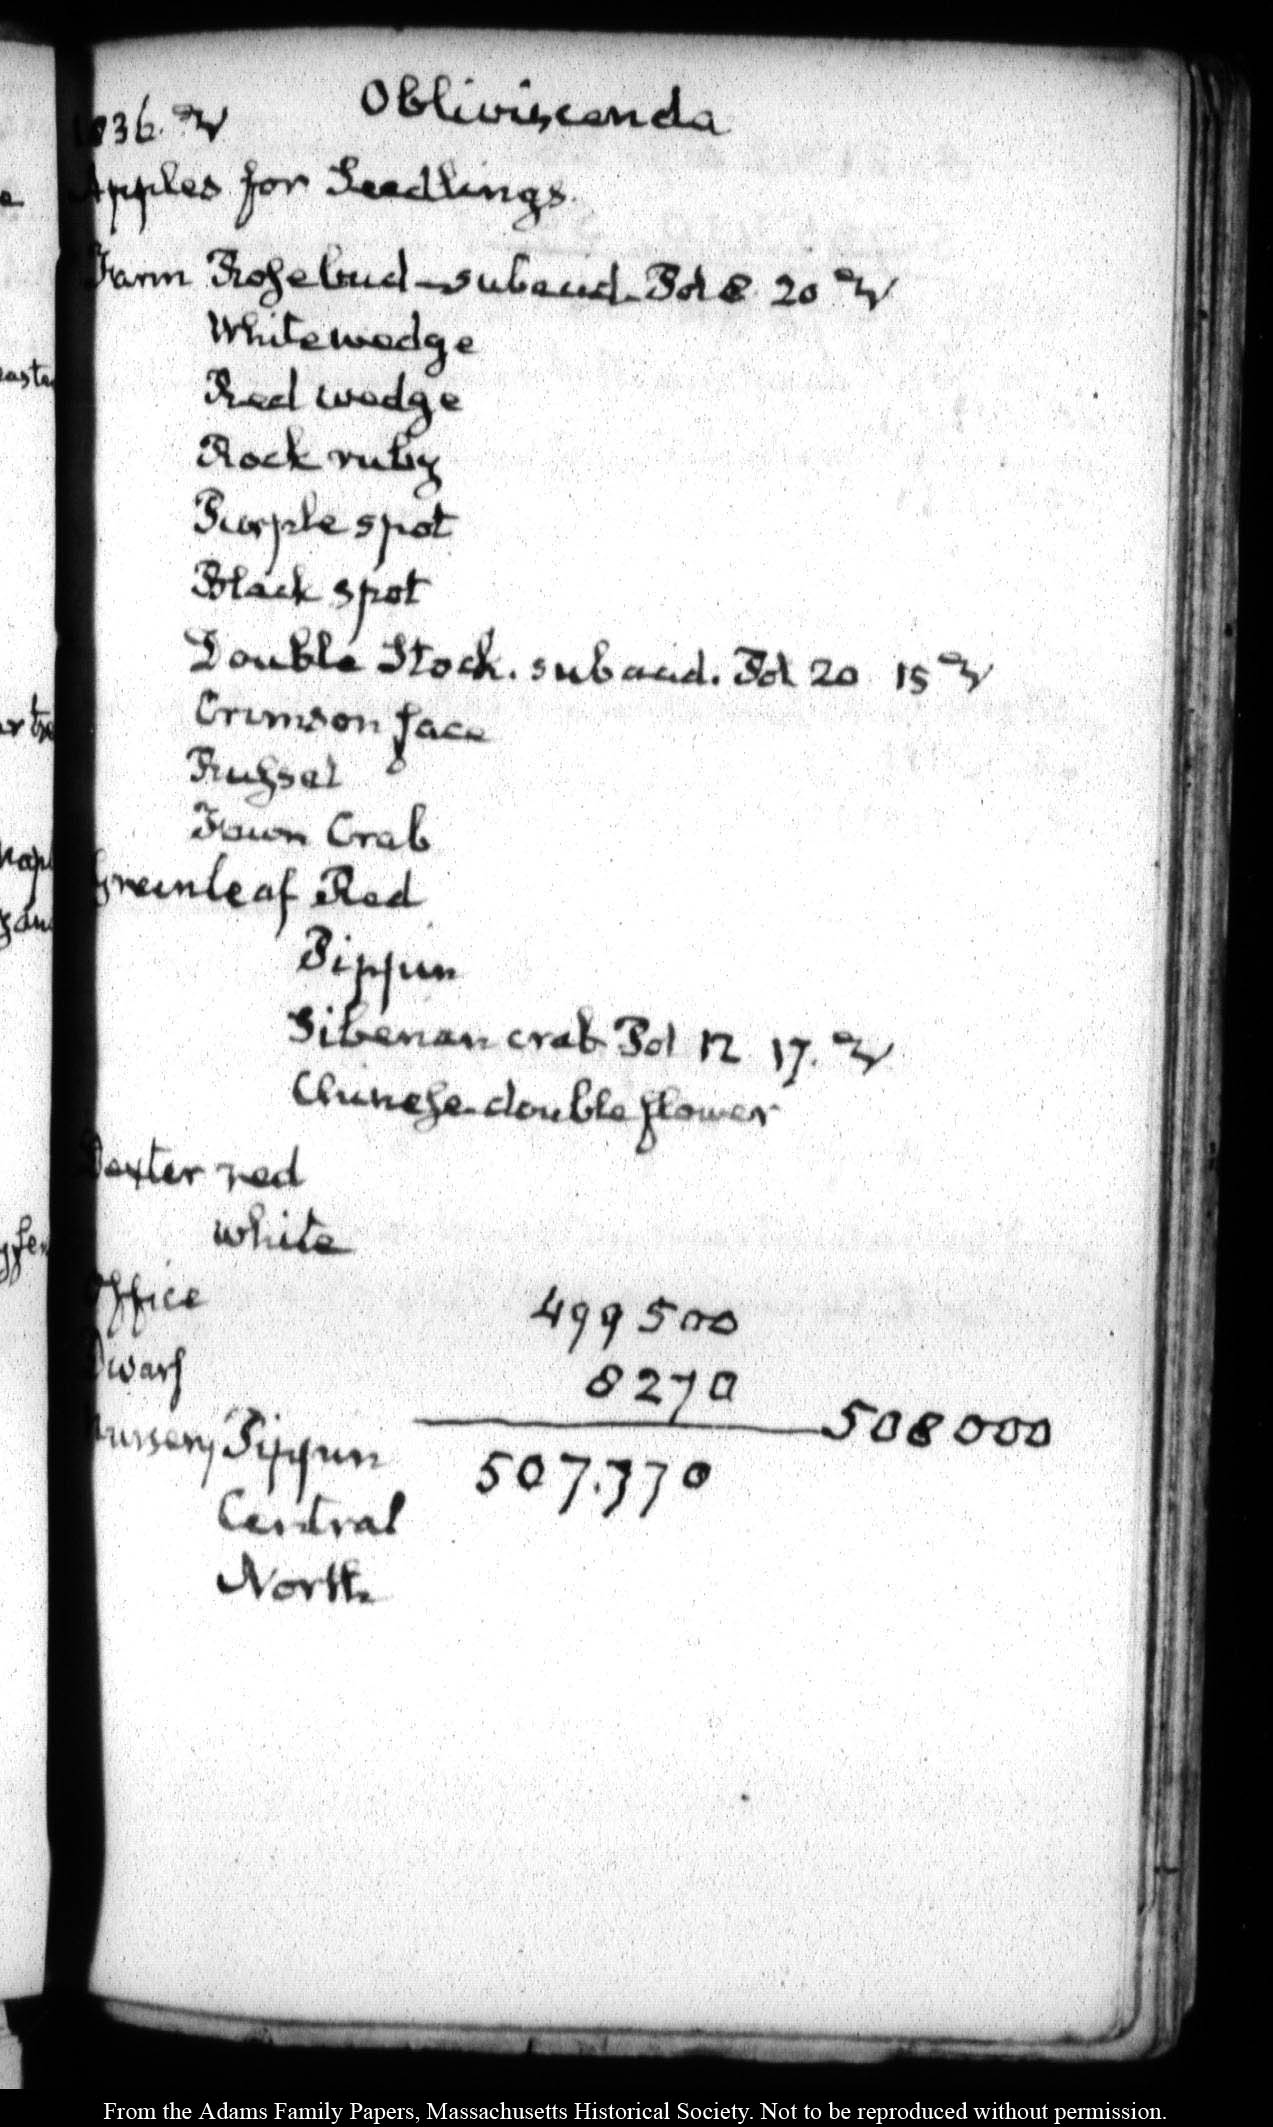 Obliviscenda
1836.
Apples for Seedlings.
Farm Rosebud - subacid. Pot 8 20
White wedge
Red wedge
Rock ruby
Purple spot
Black spot
Double Stock. subacid. Pot 20 15
Crimson face
Russet
Fawn Crab
Greenleaf Red
Pippin
Siberian crab Pot 12 17.
Chinese double flower
Dexter red
white
Office
499500
Dwarf
8270
508000
Nursery Pippin
507.770
Central
North
From the Adams Family Papers, Massachusetts Historical Society. Not to be reproduced without permission.